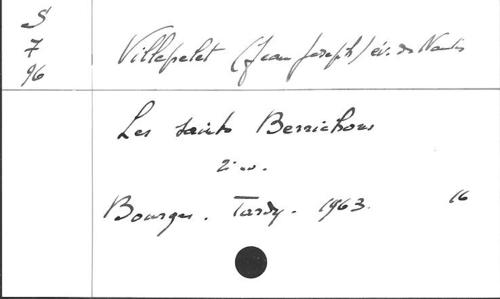 S
7
96
Villepelet (Jean Joseph) év. de Nantes
Les saints Berrichons
2i
Bourges. Tardy. 1963. 16